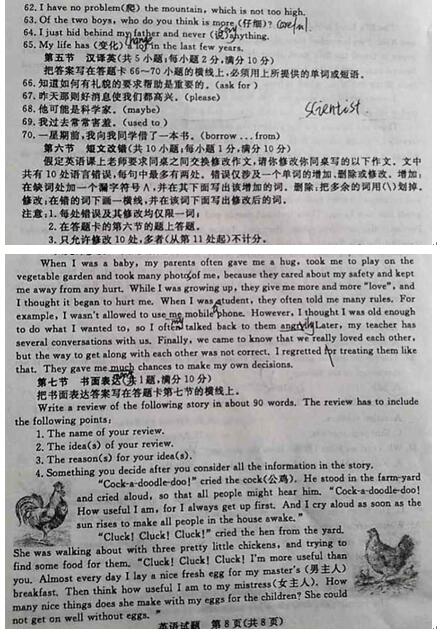 62. I have no problem(爬) the mountain, which is not too high.
63. Of the two boys, who do you think is more (仔细)? careful.
64. I just hid behind my father and never (说)anything.
65. My life has (变化) a lot in the last few years.
第五节 汉译英(共5小题;每小题2分,满分10分)
把答案写在答题卡66—70小题的横线上,必须用上所提供的单词或短语。
66. 知道如何有礼貌的要求帮助是重要的。(ask for )
67. 昨天那则好消息使我们都高兴。(please)
68. 他可能是科学家。(maybe) scientist.
69. 我过去常常害羞。(used to )
70. 一星期前,我向我同学借了一本书。(borrow ... from)
第六节 短文改错(共10小题;每小题1分,满分10分)
假定英语课上老师要求同桌之间交换修改作文,请你修改你同桌写的以下作文。文中
共有10处语言错误,每句中最多有两处。错误仅涉及一个单词的增加、删除或修改。增加:
在缺词处加一个漏字符号∧,并在其下面写出该增加的词。删除:把多余的词用(\)划掉。
修改:在错的词下画一横线,并在该词下面写出修改后的词。
注意:1. 每处错误及其修改均仅限一词;
2. 在答题卡的第六节的题上答题。
3. 只允许修改10处,多者(从第11处起)不计分。
When I was a baby, my parents often gave me a hug, took me to play on the
vegetable garden and took many photo of me, because they cared about my safety and kept
me away from any hurt. While I was growing up, they give me more and more "love", and
I thought it began to hurt me. When I was student, they often told me many rules. For
example, I wasn't allowed to use me mobile phone. However, I thought I was old enough
to do what I wanted to, so I often talked back to them angry. Later, my teacher has
several conversations with us. Finally, we came to know that we really loved each other,
but the way to get along with each other was not correct. I regretted for treating them like
that. They gave me much chances to make my own decisions.
第七节 书面表达(共1题,满分10分)
把书面表达答案写在答题卡第七节的横线上。
Write a review of the following story in about 90 words. The review has to include
the following points:
1. The name of your review.
2. The idea(s) of your review.
3. The reason(s) for your idea(s).
4. Something you decide after you consider all the information in the story.
"Cock-a-doodle-doo!" cried the cock(公鸡). He stood in the farm-yard
and cried aloud, so that all people might hear him. "Cock-a-doodle-doo!
How useful I am, for I always get up first. And I cry aloud as soon as the
sun rises to make all people in the house awake."
"Cluck! Cluck! Cluck!" cried the hen from the yard.
She was walking about with three pretty little chickens, and trying to
find some food for them. "Cluck! Cluck! Cluck! I'm more useful than
you. Almost every day I lay a nice fresh egg for my master's (男主人)
breakfast. Then think how useful I am to my mistress(女主人). How
many nice things does she make with my eggs for the children? She could
not get on well without eggs. "
英语试题 第8页(共8页)